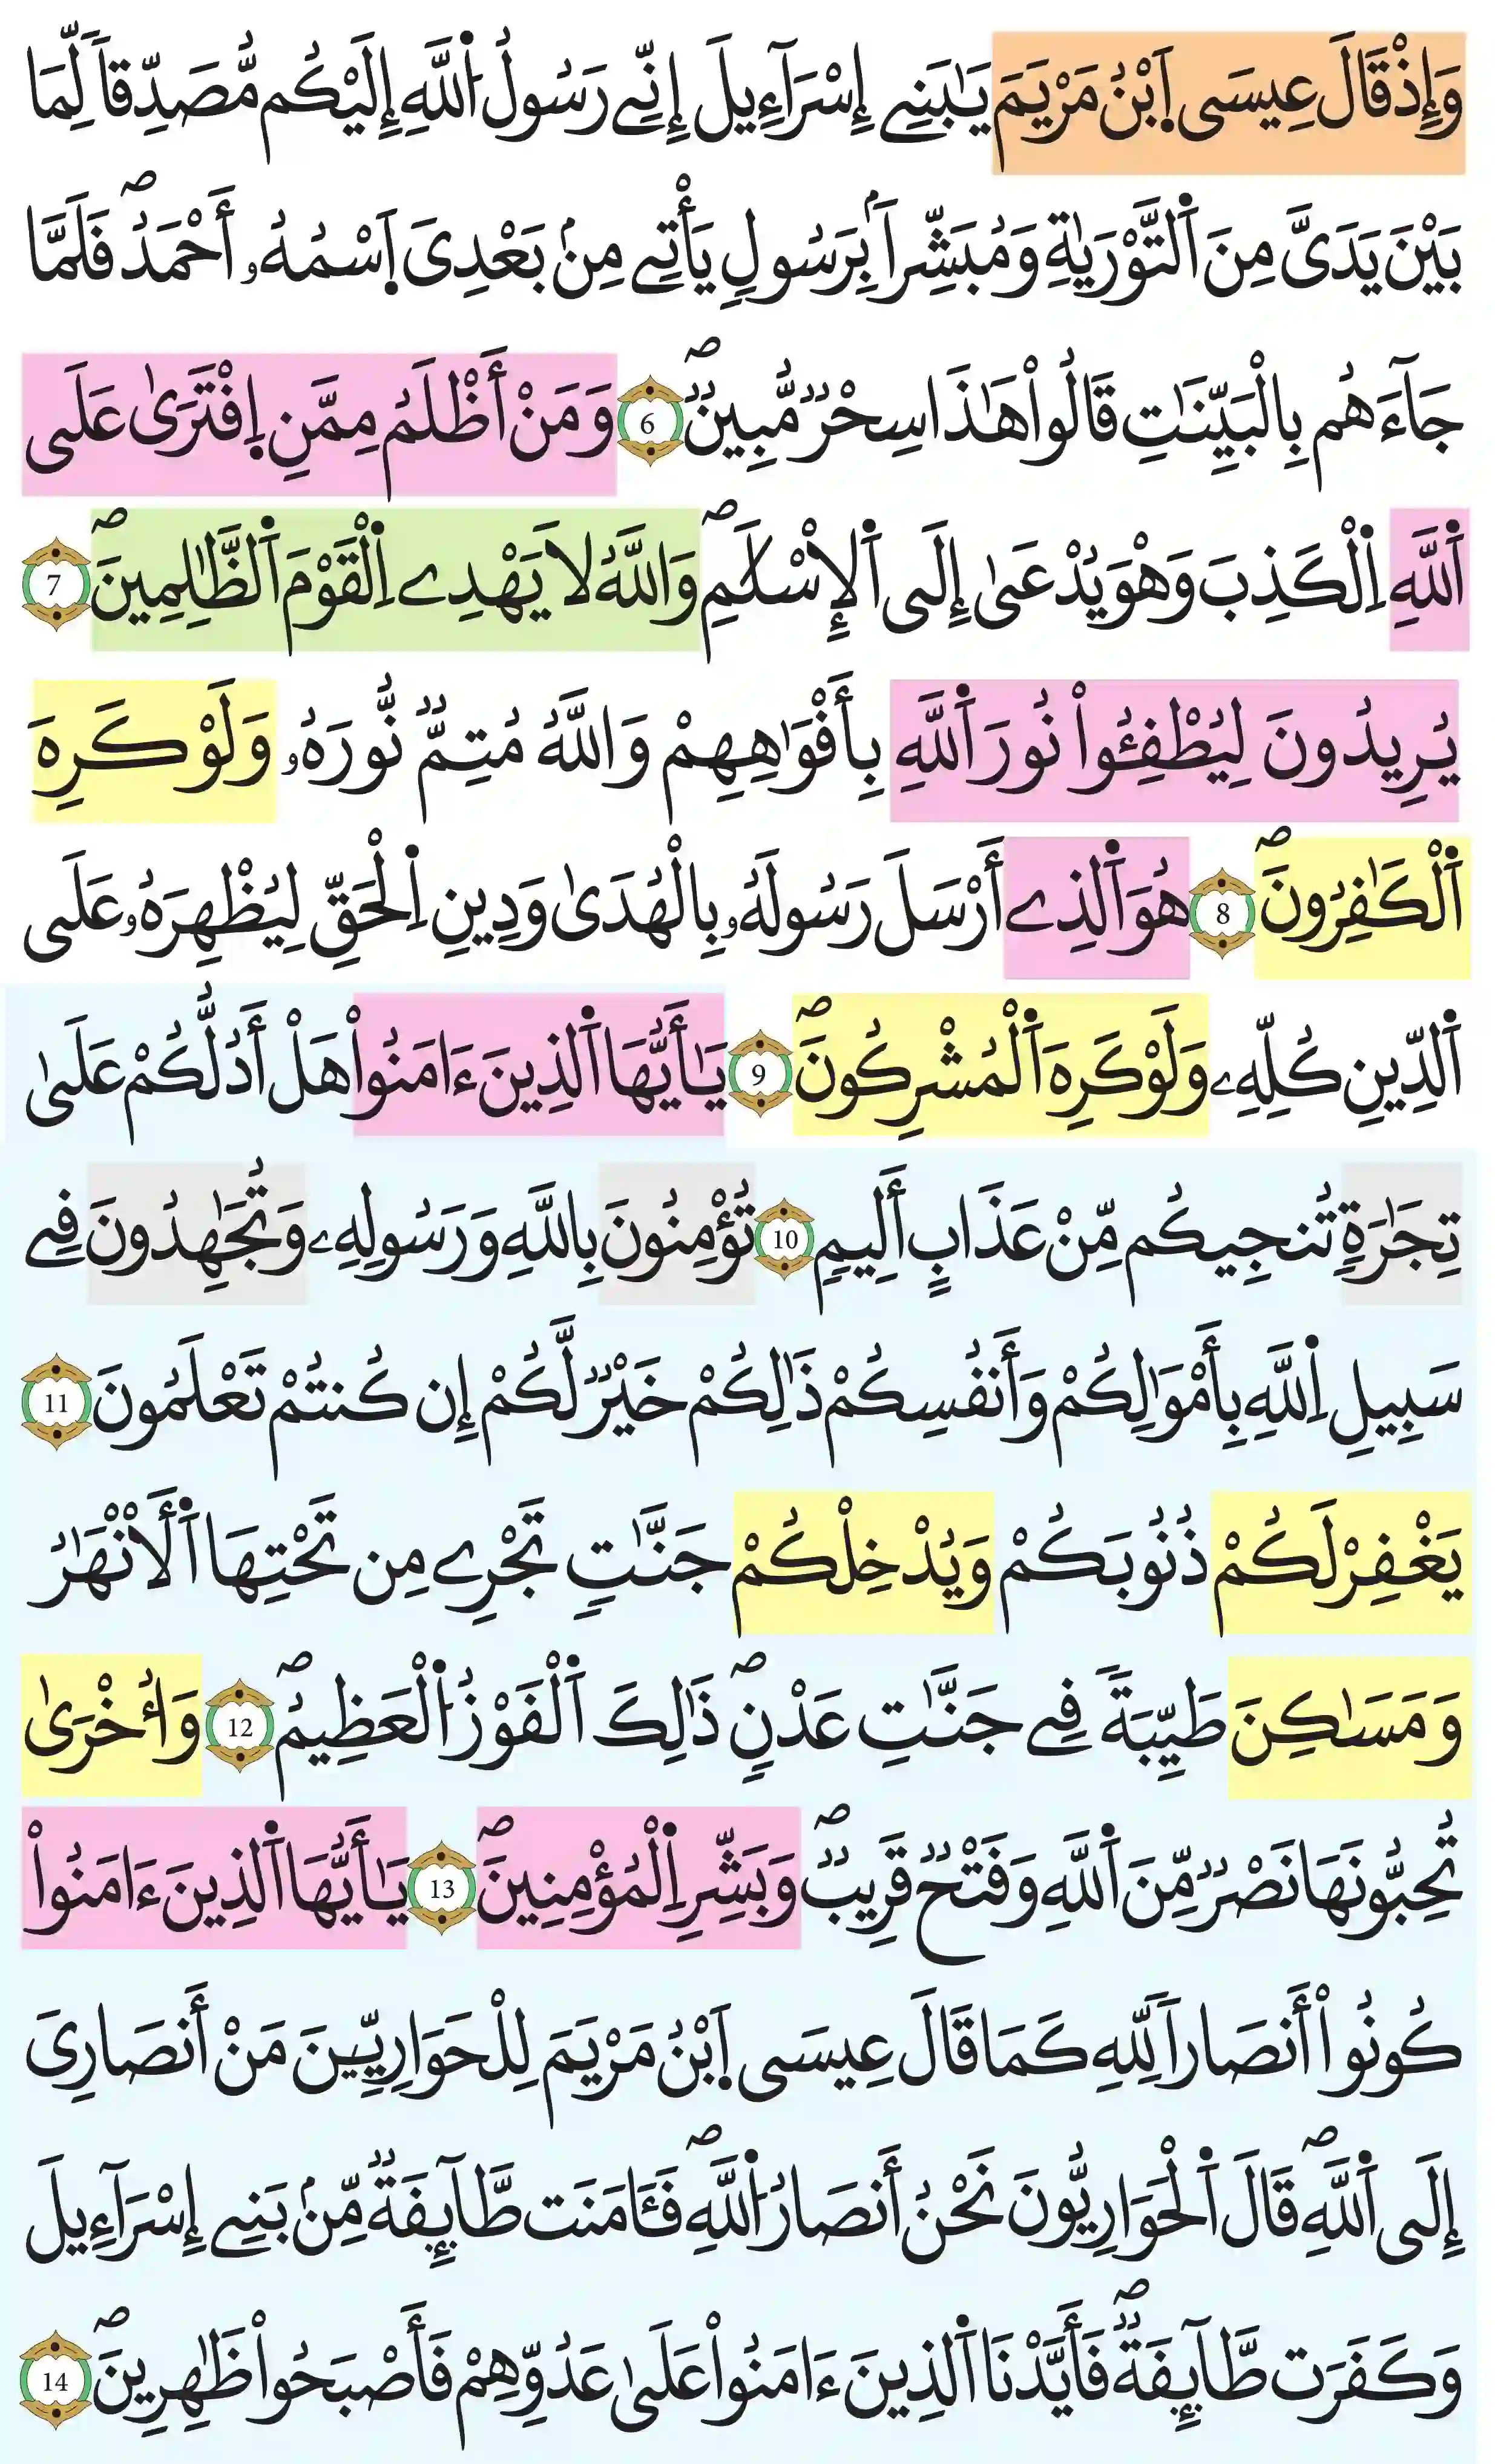 وَإِذْ قَالَ عِيسَى اَ۪بْنُ مَرْيَمَ يَٰبَنِے إِسْرَآءِيلَ إِنِّے رَسُولُ اُ۬للَّهِ إِلَيْكُم مُّصَدِّقاٗ لِّمَا
بَيْنَ يَدَىَّ مِنَ اَ۬لتَّوْرَيٰةِ وَمُبَشِّراَۢ بِرَسُولٖ يَأْتِے مِنۢ بَعْدِىَ اَ۪سْمُهُۥٓ أَحْمَدُۖ فَلَمَّا
جَآءَهُم بِالْبَيِّنَٰتِ قَالُواْ هَٰذَا سِحْرٞ مُّبِينٞۖ 6 وَمَنْ أَظْلَمُ مِمَّنِ اِ۪فْتَرَىٰ عَلَى
اَ۬للَّهِ اِ۬لْكَذِبَ وَهْوَ يُدْعَىٰ إِلَى اَ۬لْإِسْلَٰمِۖ وَاللَّهُ لَا يَهْدِے اِ۬لْقَوْمَ اَ۬لظَّٰلِمِينَۖ 7
يُرِيدُونَ لِيُطْفِـُٔواْ نُورَ اَ۬للَّهِ بِأَفْوَٰهِهِمْ وَاللَّهُ مُتِمّٞ نُّورَهُۥ وَلَوْ كَرِهَ
اَ۬لْكَٰفِرُونَۖ 8 هُوَ اَ۬لذِے أَرْسَلَ رَسُولَهُۥ بِالْهُدَىٰ وَدِينِ اِ۬لْحَقِّ لِيُظْهِرَهُۥ عَلَى
اَ۬لدِّينِ كُلِّهِۦ وَلَوْ كَرِهَ اَ۬لْمُشْرِكُونَۖ 9 يَٰٓأَيُّهَا اَ۬لذِينَ ءَامَنُواْ هَلْ أَدُلُّكُمْ عَلَىٰ
تِجَٰرَةٖ تُنجِيكُم مِّنْ عَذَابٍ أَلِيمٖ 10 تُؤْمِنُونَ بِاللَّهِ وَرَسُولِهِۦ وَتُجَٰهِدُونَ فِے
سَبِيلِ اِ۬للَّهِ بِأَمْوَٰلِكُمْ وَأَنفُسِكُمْ ذَٰلِكُمْ خَيْرٞ لَّكُمْ إِن كُنتُمْ تَعْلَمُونَ 11
يَغْفِرْ لَكُمْ ذُنُوبَكُمْ وَيُدْخِلْكُمْ جَنَّٰتٖ تَجْرِے مِن تَحْتِهَا اَ۬لْأَنْهَٰرُ
وَمَسَٰكِنَ طَيِّبَةٗ فِے جَنَّٰتِ عَدْنٖۖ ذَٰلِكَ اَ۬لْفَوْزُ اُ۬لْعَظِيمُۖ 12 وَأُخْرَىٰ
تُحِبُّونَهَا نَصْرٞ مِّنَ اَ۬للَّهِ وَفَتْحٞ قَرِيبٞۖ وَبَشِّرِ اِ۬لْمُؤْمِنِينَۖ 13 يَٰٓأَيُّهَا اَ۬لذِينَ ءَامَنُواْ
كُونُواْ أَنصَاراٗ لِّلهِ كَمَا قَالَ عِيسَى اَ۪بْنُ مَرْيَمَ لِلْحَوَارِيِّـۧنَ مَنْ أَنصَارِىَ
إِلَى اَ۬للَّهِۖ قَالَ اَ۬لْحَوَارِيُّونَ نَحْنُ أَنصَارُ اُ۬للَّهِۖ فَـَٔامَنَت طَّآئِفَةٞ مِّنۢ بَنِے إِسْرَآءِيلَ
وَكَفَرَت طَّآئِفَةٞۖ فَأَيَّدْنَا اَ۬لذِينَ ءَامَنُواْ عَلَىٰ عَدُوِّهِمْ فَأَصْبَحُواْ ظَٰهِرِينَۖ 14